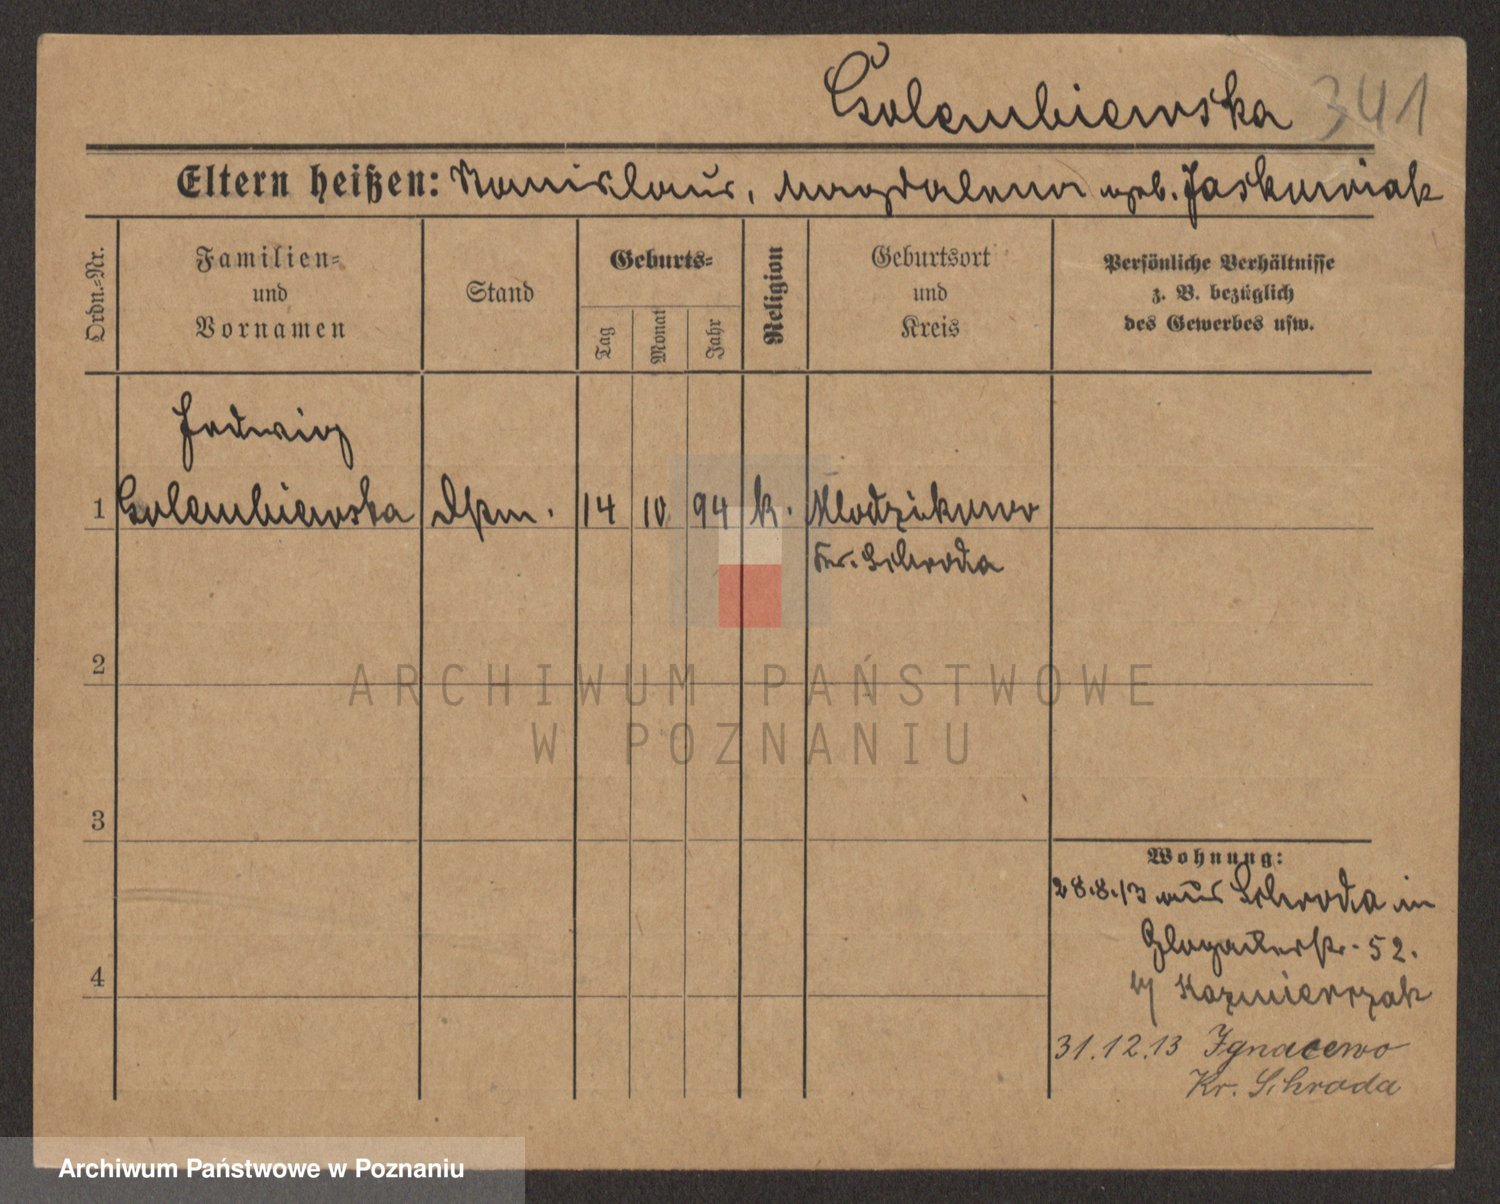 Golembiewska 341
Eltern heißen: Stanislaus, Magdalena geb. Jaskuwiak
Ordn.-Nr.
Familien- und Vornamen
Stand
Geburts-
Tag
Monat
Jahr
Religion
Geburtsort und Kreis
Persönliche Verhältnisse
z. B. bezüglich
des Gewerbes usw.
Hedwig
1 Golembiewska 14 10 94 k. Mlodzikowo
Kr. Schroda
2
ARCHIWUM PAŃSTWOWE
W POZNANIU
3
Wohnung:
28.8.13 aus Schroda in
Glogauerstr. 52.
4
b/ Kazmierczak
31.12.13 Ignacewo
Kr. Schroda
Archiwum Państwowe w Poznaniu